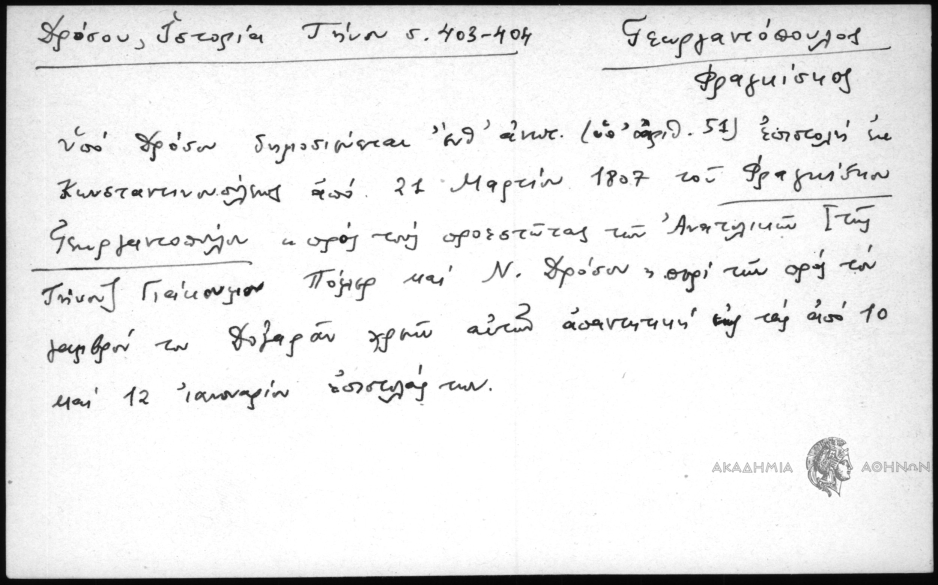 Δρόσου, Ἱστορία Τήνου σ. 403-404
Γεωργαντόπουλος
Φραγκίσκος
ὑπό Δρόσου δημοσιεύεται ἐνθ' ἀνωτ. (ὑπ' ἀριθ. 51) ἐπιστολή ἐκ
Κωνσταντινουπόλεως ἀπό 21 Μαρτίου 1807 τοῦ Φραγκίσκου
Γεωργαντοπούλου πρός τούς προεστῶτας τῶν Ἀνατολικῶν [τῆς
Τήνου] Γιάκουμον καί Ν. Δρόσον περί τῶν πρός τόν
γαμβρόν του χρεῶν αὐτῶν ἀπαντητική εἰς τάς ἀπό 10
καί 12 ἰανουαρίου ἐπιστολάς των.
ΑΚΑΔΗΜΙΑ ΑΘΗΝΩΝ